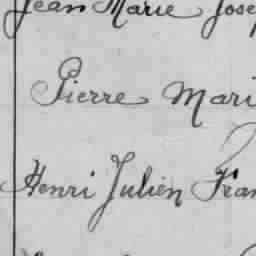 Jean Marie Josep
Pierre Mari
Henri Julien Fran